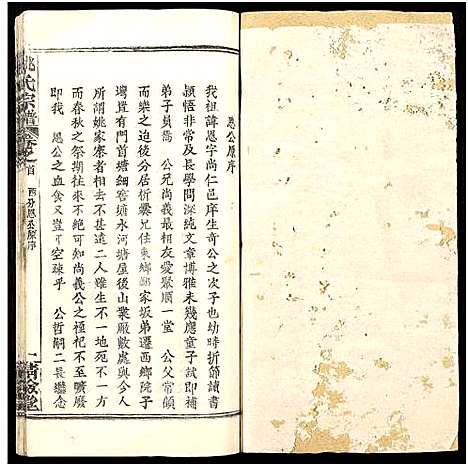 恩公原序
我祖諱恩字尚仁邑庠生奇公之次子也幼時折節讀書
不事嬉遊及長學問深純文章博雅未幾應童子試即補
弟子員焉 公兄尚義最相友愛聚順一堂 公父常顧
而樂之迨後分居析爨兄住東鄉鄒家坂弟遷西鄉院子
塆置有門首塘細窖塘水河塘屋後山業厰數處與今人
所謂姚家寨者相去不甚遠二人雖生不一地死不一方
而春秋之祭期往來不絕可知尚義公之杜不至曠廢
即我 恩公之血食又豈可空疎乎 公哲嗣二長繼念
氏宗譜
卷之首
西分恩公原序
一